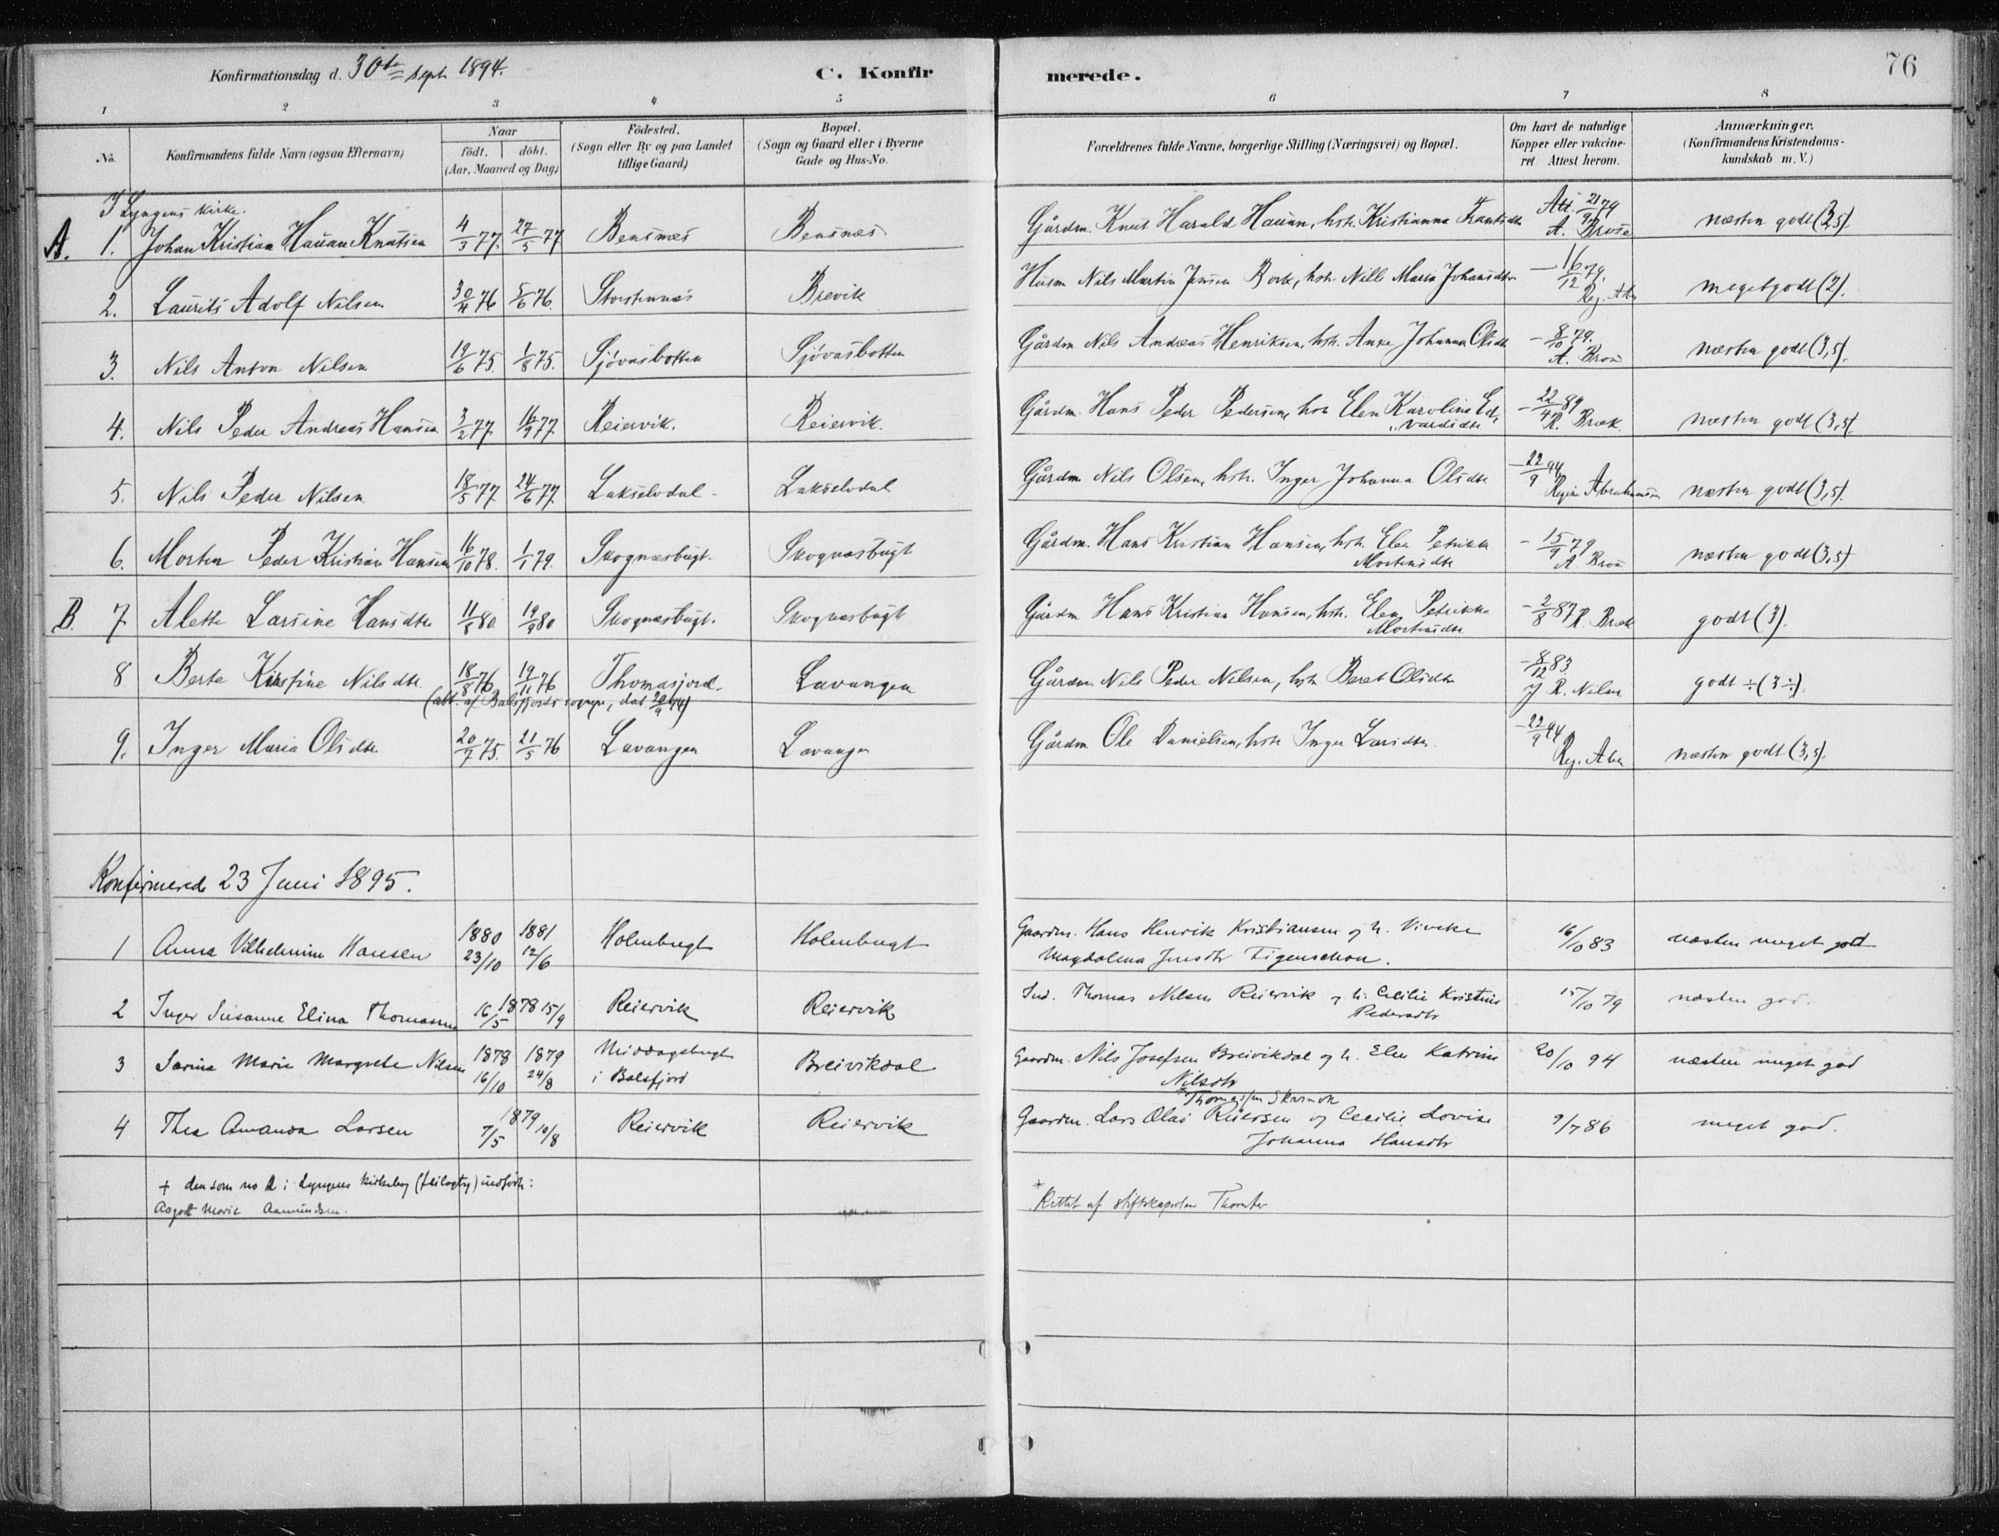 Konfirmationsdag d. 30te sept. 1894.
C. Konfir
merede.
76
1 2 3 4 5 6 7 8
No.
Konfirmandens fulde Navn (ogsaa Efternavn)
Naar
födt. döbt.
(Aar, Maaned og Dag)
Födested.
(Sogn eller By og paa Landet
tillige Gaard)
Bopæl.
(Sogn og Gaard eller i Byerne
Gade og Hus-No.
Forældrenes fulde Navne, borgerlige Stilling (Næringsvei) og Bopæl.
Om havt de naturlige
Kopper eller vakcine-
ret Attest herom.
Anmærkninger.
(Konfirmandens Kristendoms-
kundskab m. V.)
I Lyngens kirke.
A. 1. Johan Kristian Hauan Knutsen 4/3 77. 27/5 77 Bensnes Bensnes Gårdm. Knut Harald Hauan, hstr. Kristianna Frantsdtr Att. 21/9 79 næsten godt (3,5)
A. Brose
2. Laurits Adolf Nilsen 30/4 76 5/6 76. Storstennes Brevik Husm Nils Martin Jensen, hstr. Nille Maria Johansdtr — 16/12 79. meget godt (2).
3. Nils Anton Nilsen 19/6 75. 1/8 75. Sjövasbotten Sjövasbotten Gårdm Nils Andreas Henriksen, hstr. Anne Johanna Olsdtr — 8/10 79. næsten godt (3,5).
4. Nils Peder Andreas Hansen 3/2 77 16/9 77 Reiervik. Reiervik. Gårdm. Hans Peder Pedersen, hstr Elen Karoline Ed- — 22/4 89 næsten godt (3,5).
vardsdtr R. Bræk.
5. Nils Peder Nilsen 18/5 77 24/6 77. Lakselvdal - Lakselvdal Gårdm Nils Olsen, hstr. Inger Johanna Olsdtr — 22/9 94 næsten godt (3,5).
Abrahamsen
6. Morten Peder Kristian Hansen 16/10 78. 1/1 79. Skognæsbugt. Skognæsbugt Gårdm. Hans Kristian Hansen, hstr. Elen Petrikke - 15/9 79 næsten godt (3,5)
Mortensdtr
B. 7 Alette Larsine Hansdtr 11/8 80. 19/9 80 Skognæsbugt. Skognæsbugt Gårdm Hans Kristian Hansen, hstr. Elen Petrikke — 2/8 87 R. Bræk godt (3).
Mortensdtr
8 Berte Kirstine Nilsdtr 18/8 76 19/11 76 Thomasjord. Lavangen Gårdm Nils Peder Nilsen, hstr Beret Olsdtr — 8/12 83 godt ÷ (3 ÷).
(att. af Balsfjords sogne, dat. 20/9 94) R. Nilsen
9. Inger Maria Olsdtr 20/7 75. 21/5 76 Lavangen Lavangen Gårdm Ole Danielsen, hstr Inger Larsdtr. — 22/9 94 næsten godt (3,5).
Konfirmerede 23 Juni 1895.
1 Anna Vilhelmine Hansen 1880 23/10 1881 12/6 Holmbugt Holmbugt Gaardm. Hans Henrik Kristiansen og h. Viveke 16/10 83 næsten meget god
Magdalena Jensdtr Figenschou.
2 Inger Susanne Elina Thomassen 1878 16/5 15/9 Reiervik Reiervik Ind. Thomas Nilsen Reiervik og h. Cecilie Kristine 15/10 79 næsten god.
Pedersdtr
3 Sarina Marie Margrete Nilsen 1878 16/10 1879 24/8 Middagsbugt Breivikdal Gaardm. Nils Josefsen Breivikdal og h. Elen Katrine 20/10 94 næsten meget god
i Balsfjord Nilsdtr
* Thomassen Skarmok
4 Thea Amanda Larsen 1879 7/5 10/8 Reiervik Reiervik Gaardm. Lars Olai Reiersen og Cecilie Lovise 9/7 86 meget god.
Johanna Hansdtr
+ den som no 2 i Lyngens kirkebog indførte:
Marie Aamundsen.
* Rettet af stiftskapellan